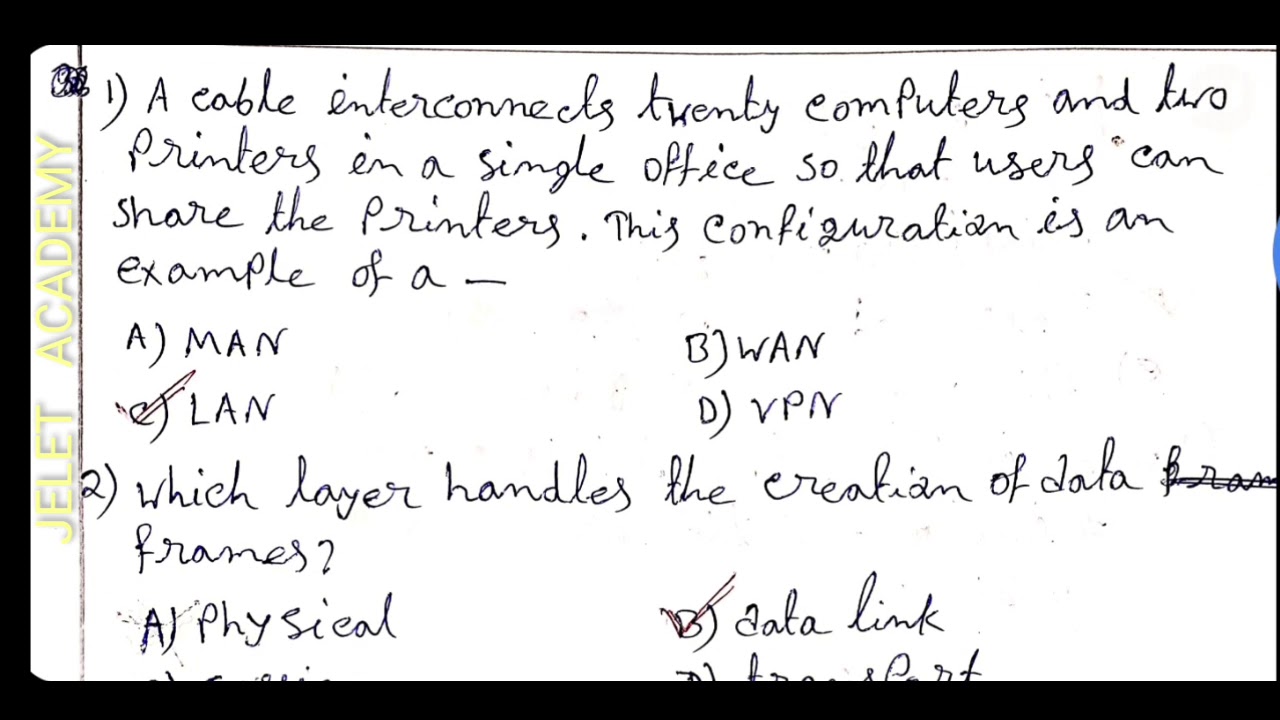 JELET ACADEMY
1) A cable interconnects twenty computers and two
Printers in a single office so that users can
share the Printers. This configuration is an
example of a —
A) MAN B) WAN
C) LAN D) VPN
2) which layer handles the creation of data
frames?
A) Physical B) data link
D) transport